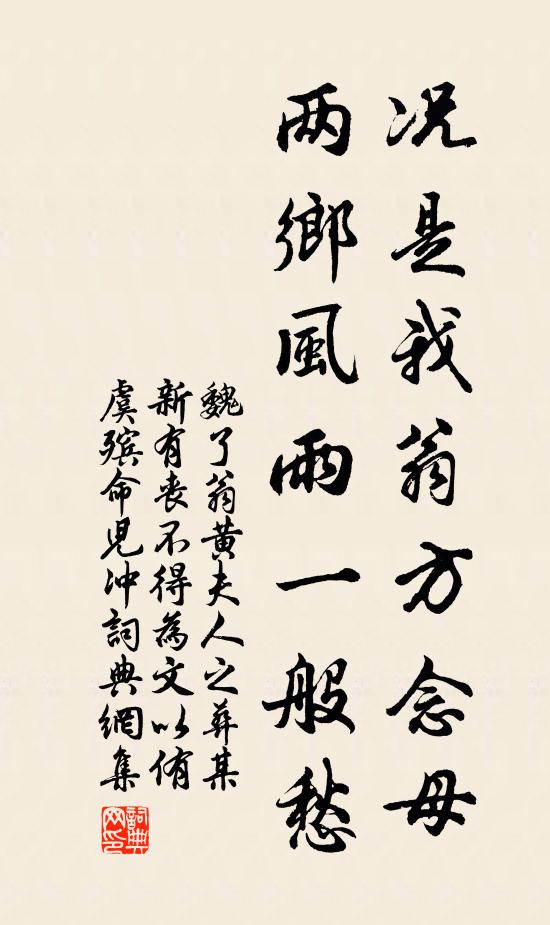 况是我翁方念母
两鄉風雨一般愁
魏了翁黄夫人之葬某
新有丧不得為文以侑
虞殡命児冲詞典網集
詞典网印